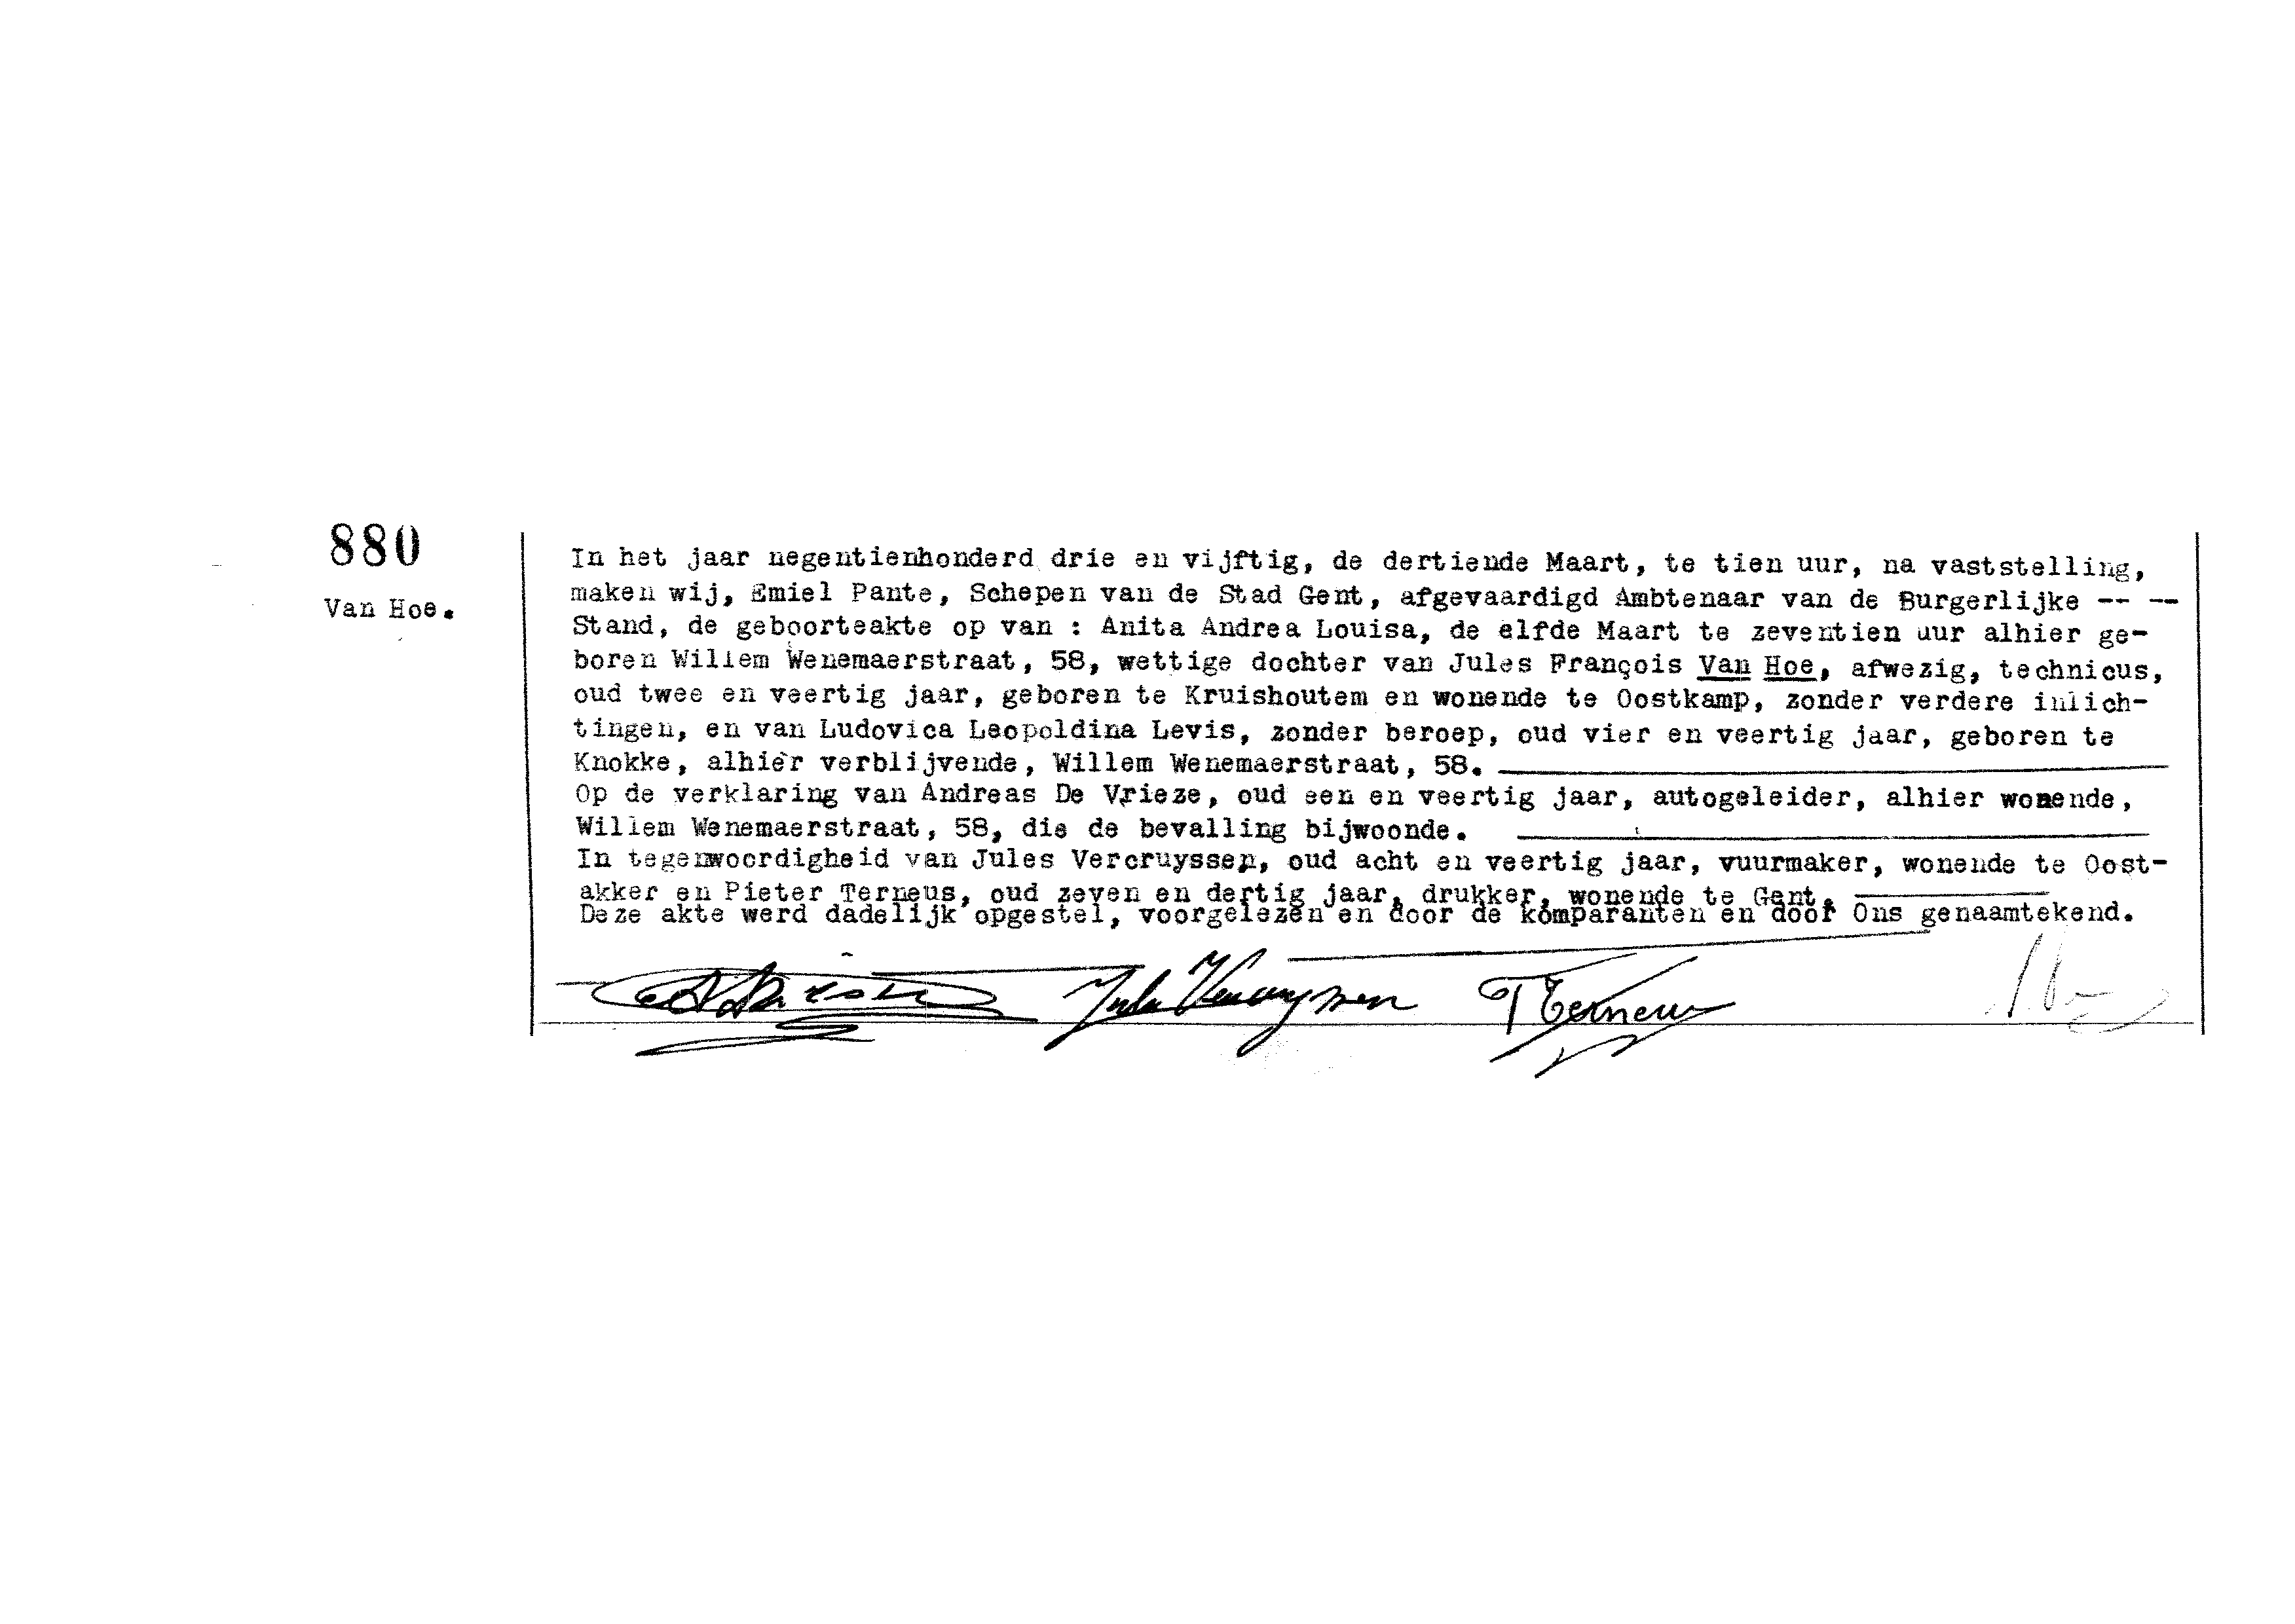 880
Van Hoe.
In het jaar negentienhonderd drie en vijftig, de dertiende Maart, te tien uur, na vaststelling,
maken wij, Emiel Pante, Schepen van de Stad Gent, afgevaardigd Ambtenaar van de Burgerlijke -- --
Stand, de geboorteakte op van : Anita Andrea Louisa, de elfde Maart te zeventien uur alhier ge-
boren Willem Wenemaerstraat, 58, wettige dochter van Jules François Van Hoe, afwezig, technicus,
oud twee en veertig jaar, geboren te Kruishoutem en wonende te Oostkamp, zonder verdere inlich-
tingen, en van Ludovica Leopoldina Levis, zonder beroep, oud vier en veertig jaar, geboren te
Knokke, alhier verblijvende, Willem Wenemaerstraat, 58.
Op de verklaring van Andreas De Vrieze, oud een en veertig jaar, autogeleider, alhier wonende,
Willem Wenemaerstraat, 58, die de bevalling bijwoonde.
In tegenwoordigheid van Jules Vercruyssen, oud acht en veertig jaar, vuurmaker, wonende te Oost-
akker en Pieter Terneus, oud zeven en dertig jaar, drukker, wonende te Gent.
Deze akte werd dadelijk opgestel, voorgelezen en door de komparanten en door Ons genaamtekend.
Jules Vercruyssen